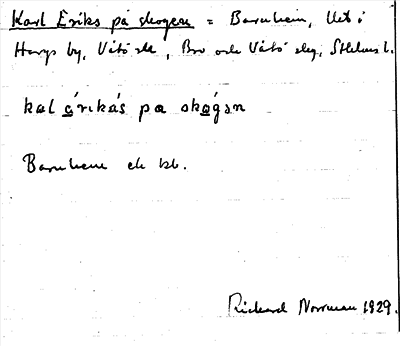 Karl Eriks på skogen = Barnhem, Uet i
Harys by, Vätö sk, Bro och Vätö skg, Sthlms l.
kal èrikás pa skògan
Barnhem ek bb.
Rickard Norrman 1929.